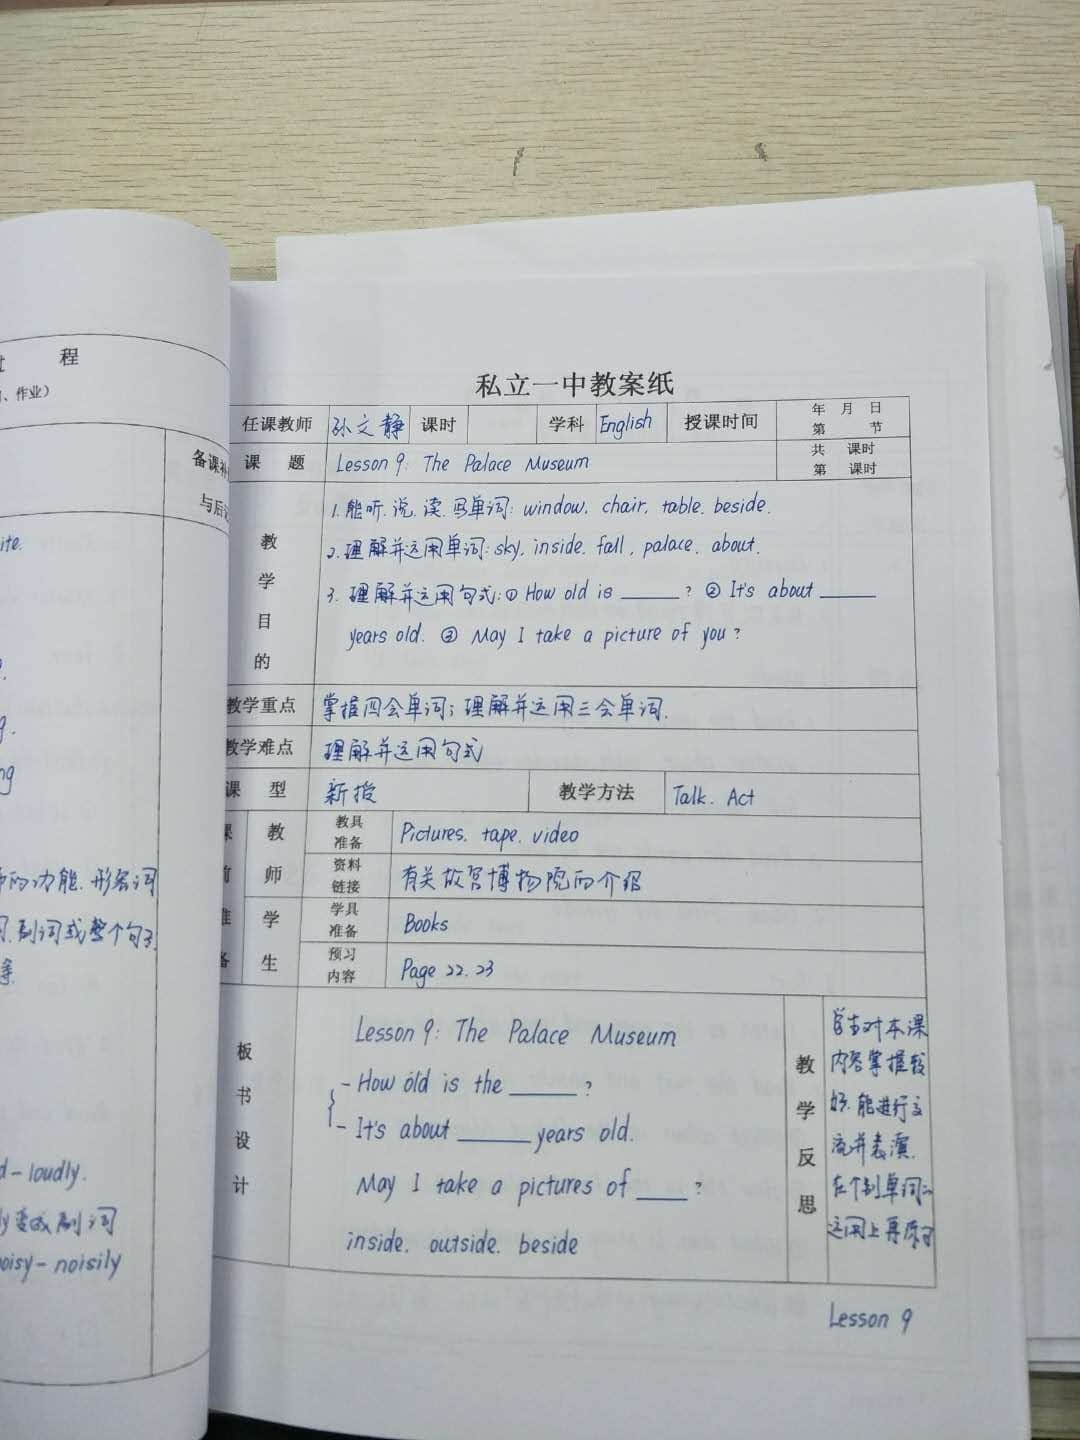 程
、作业）
备课补
与后记
ite.
ng
的功能.形容词
副词或整个句子
等.
d-loudly.
y变成副词
oisy-noisily
私立一中教案纸
任课教师 孙文静 课时 学科 English 授课时间 年 月 日
第 节
课 题 Lesson 9: The Palace Museum 共 课时
第 课时
教学目的
1.能听.说.读.写单词: window. chair. table. beside.
2.理解并运用单词: sky. inside. fall. palace. about.
3.理解并运用句式:① How old is ______? ② It's about ______
years old. ③ May I take a picture of you?
教学重点 掌握四会单词；理解并运用三会单词.
教学难点 理解并运用句式
课 型 新授 教学方法 Talk. Act
课前准备
教师
教具准备 Pictures. tape. video
资料链接 有关故宫博物院的介绍
学生
学具准备 Books
预习内容 Page 22.23
板书设计
Lesson 9: The Palace Museum
- How old is the ______?
- It's about ______ years old.
May I take a pictures of ____?
inside. outside. beside
教学反思
对本课
内容掌握较
好.能进行交
流并表演.
在个别单词
运用上再
Lesson 9